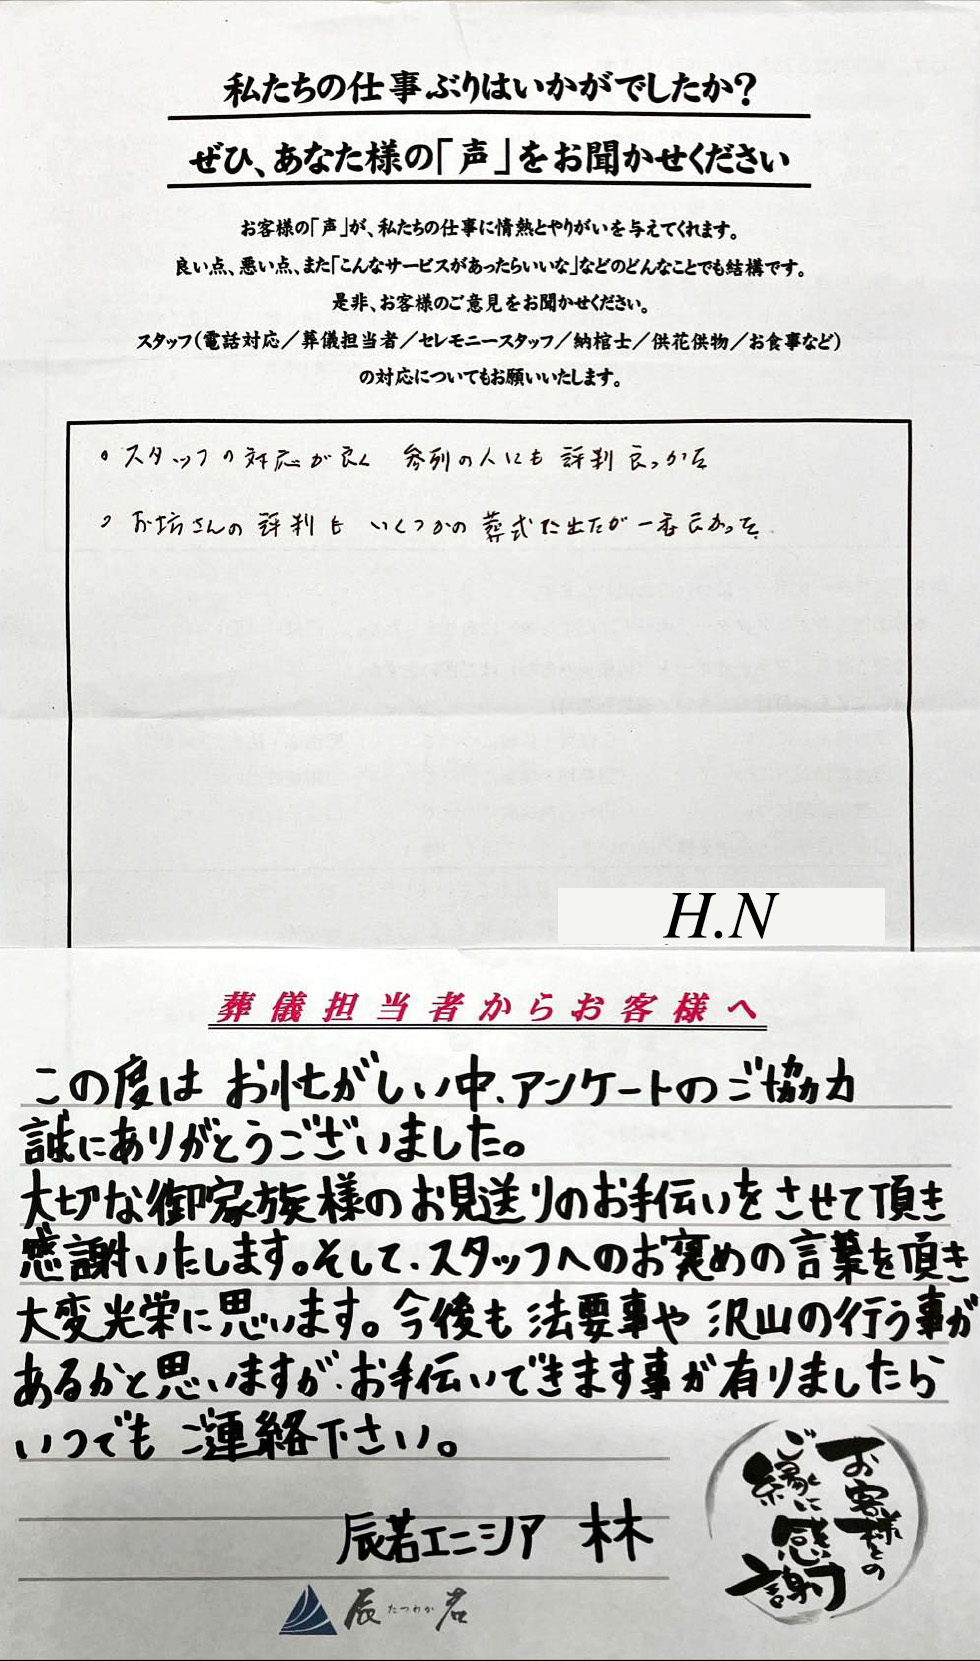 私たちの仕事ぶりはいかがでしたか?
ぜひ、あなた様の「声」をお聞かせください
お客様の「声」が、私たちの仕事に情熱とやりがいを与えてくれます。
良い点、悪い点、また「こんなサービスがあったらいいな」などのどんなことでも結構です。
是非、お客様のご意見をお聞かせください。
スタッフ(電話対応/葬儀担当者/セレモニースタッフ/納棺士/供花供物/お食事など)
の対応についてもお願いいたします。
。スタッフの対応が良く 参列の人にも評判良っかた
。お坊さんの評判も いくつかの葬式に出たが一番良かった
H.N
葬儀担当者からお客様へ
この度は お忙がしい中、アンケートのご協力
誠にありがとうございました。
大切な御家族様のお見送りのお手伝いをさせて頂き
感謝いたします。そして、スタッフへのお褒めの言葉を頂き
大変光栄に思います。今後も法要事や沢山の行う事が
あるかと思いますが、お手伝いできます事が有りましたら
いつでも ご連絡下さい。
辰若エニシア 林
お客様との
ご縁に
感謝
辰たつわか若